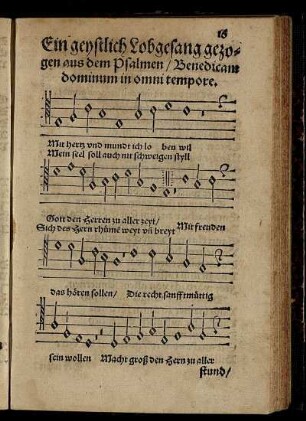 18
Ein geystlich Lobgesang gezo-
gen aus dem Psalmen / Benedicam
dominum in omni tempore.
Mit hertz vnd mundt ich lo ben wil
Mein seel soll auch nit schweigen styll
Gott den Herren zu aller zeyt /
Sich des Hern rhümē weyt vñ breyt Mit freuden
das hören sollen / Die recht sanfftmüttig
sein wollen Macht groß den Hern zu aller
stund /